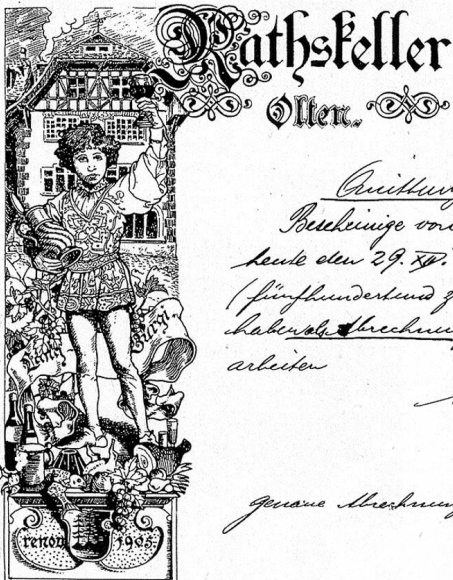 Rathskeller
Olten.
Quittung
Bescheinige von
heute den 29. XII.
(fünfhundertund z
haben als Abrechnung
arbeiten
Lang Bürgi.
genaue Abrechnung
renov 1905